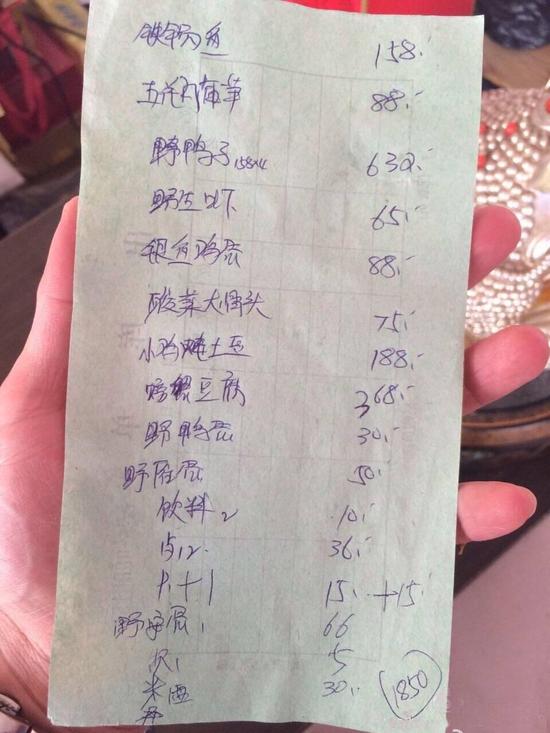 铁锅鱼 158.-
五花肉 88.-
野鸭子 158×4 632.-
野生 65.-
银鱼鸡蛋 88.-
酸菜大骨头 75.-
小鸡炖土豆 188.-
螃蟹豆腐 368.-
野鸭蛋 30.-
野 蛋 50.-
饮料2 10.-
12. 36.-
15.- +15.-
野 蛋1 66
5
米 30.- 1850